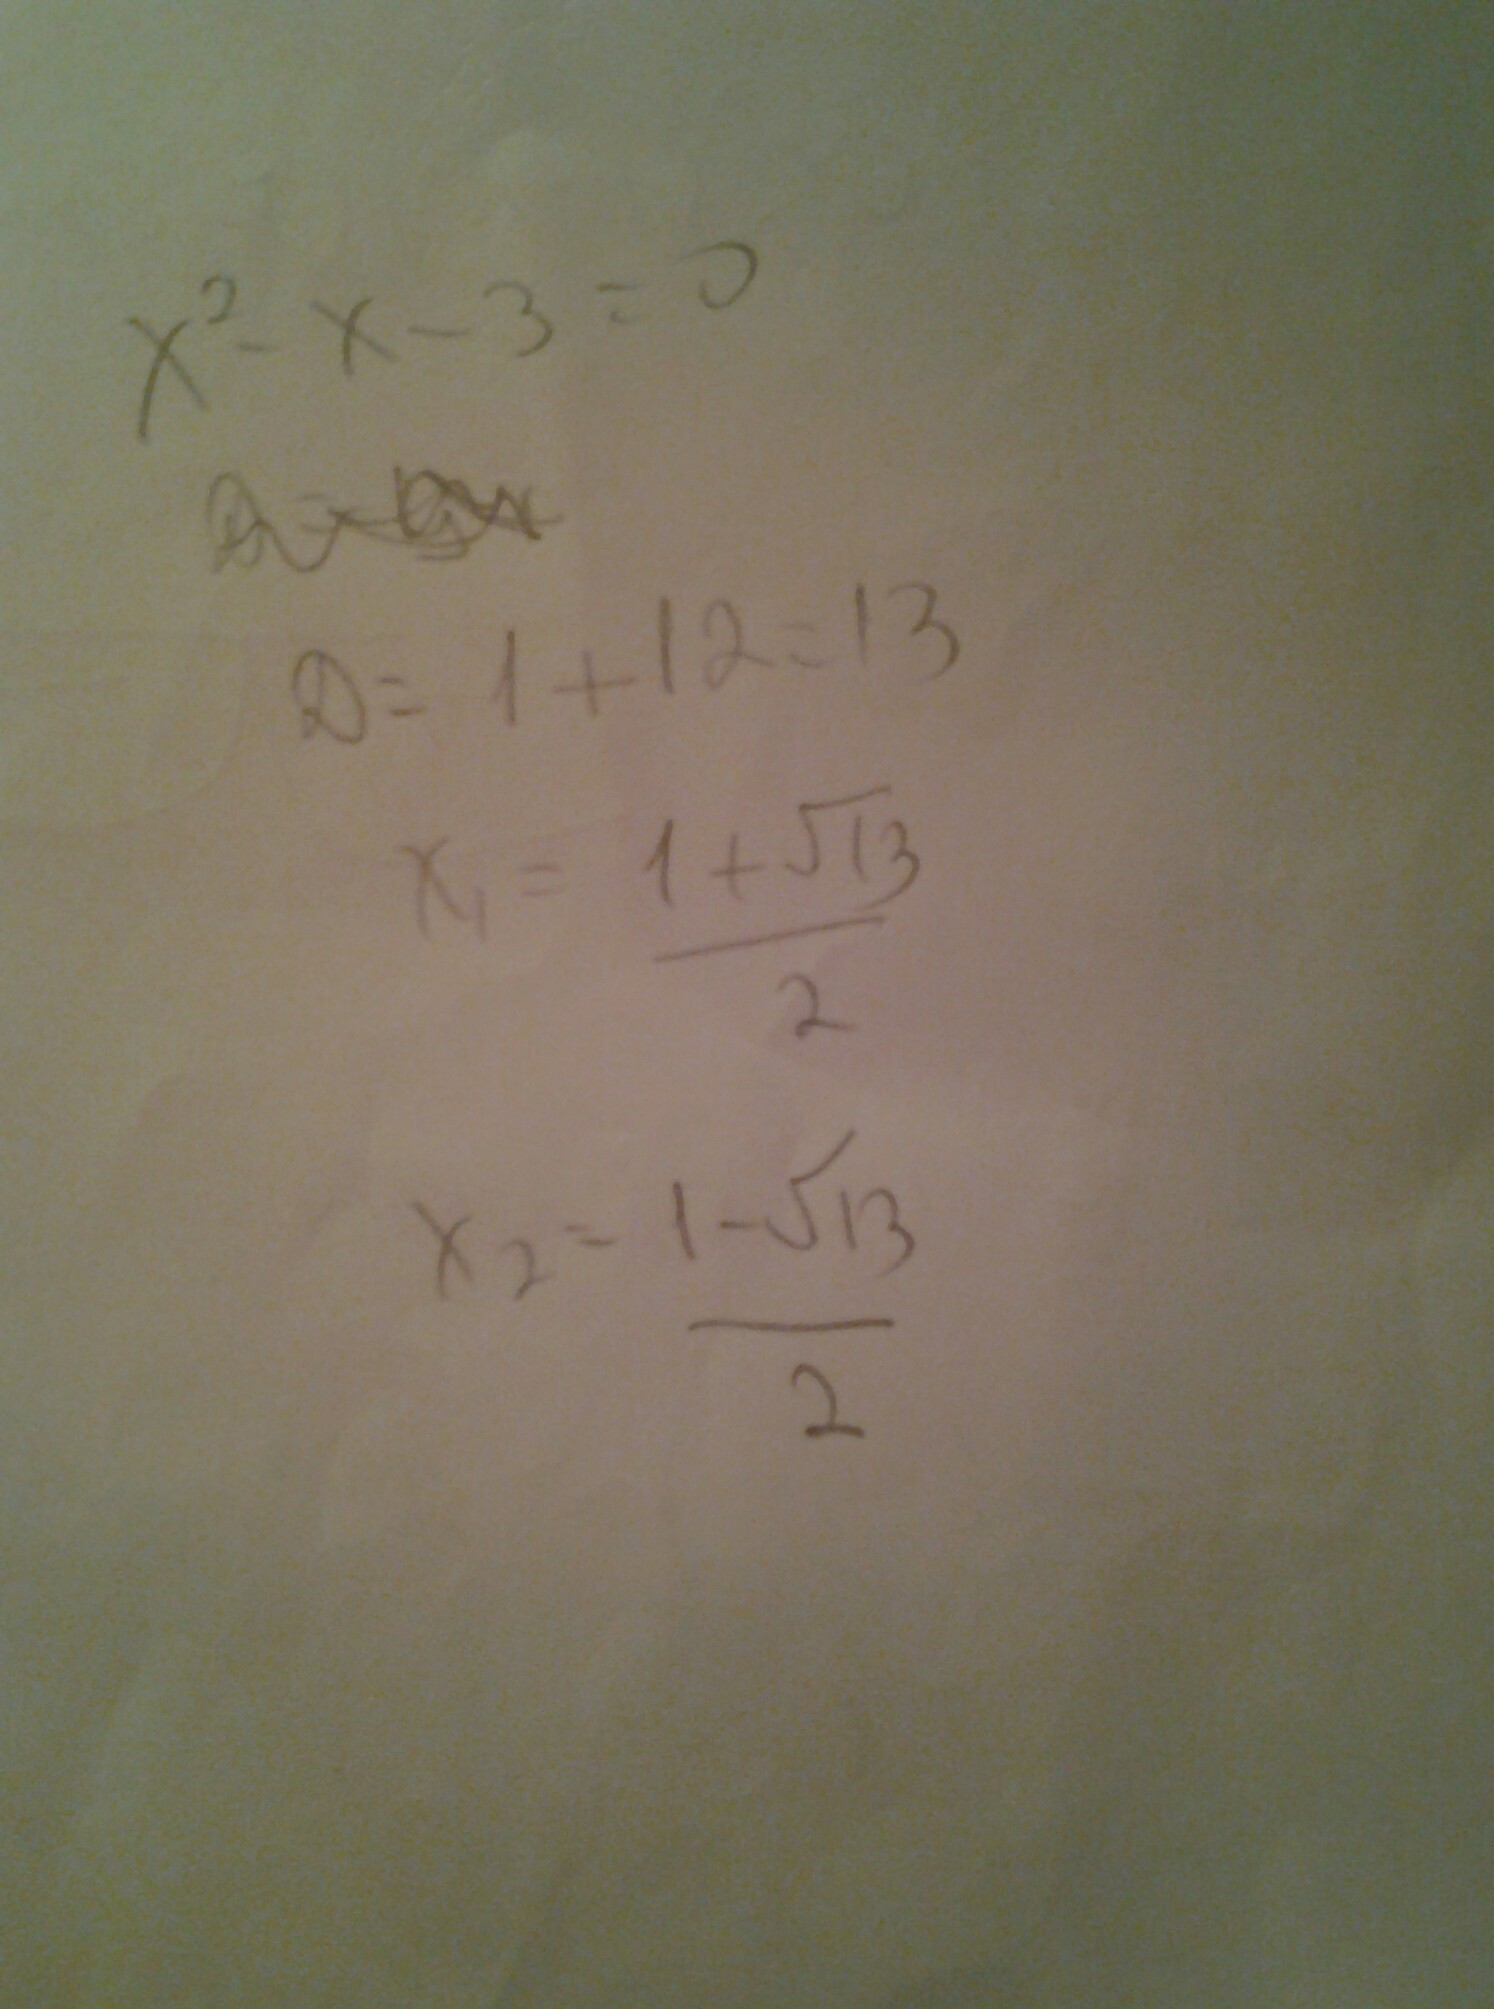 x² - x - 3 = 0
D = 1 + 12 = 13
x₁ = (1 + √13) / 2
x₂ = (1 - √13) / 2